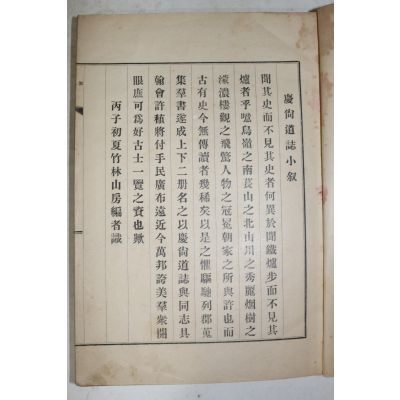 慶尙道誌小叙
聞其史而不見其史者何異於聞鐵爐步而不見其
爐者乎嗟鳥嶺之南莨山之北山川之秀麗烟樹之
濛濃樓觀之飛驚人物之冠冕朝家之所與許也而
古有史今無傳讀者幾稀矣以是之懼驅馳列郡蒐
集羣書遂成上下二册名之以慶尙道誌與同志具
翰會許植將付手民廣布遠近今萬邦誇美羣衆開
眼庶可爲好古士一覽之資也歟
丙子初夏竹林山房編者識